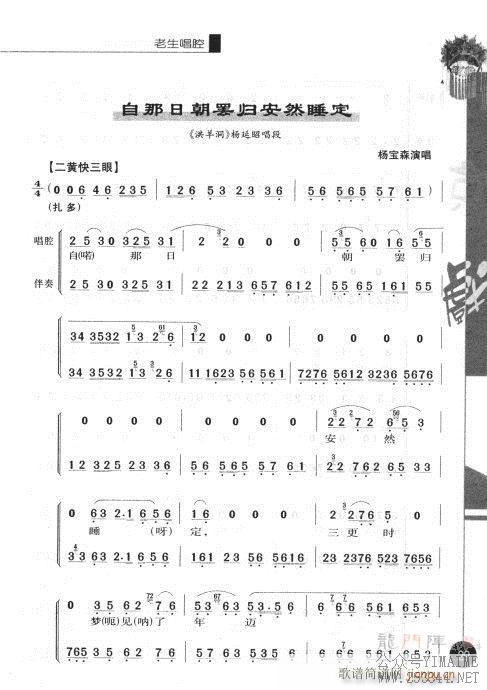 老生唱腔
自那日朝罢归安然睡定
《洪羊洞》杨延昭唱段
杨宝森演唱
【二黄快三眼】
4/4 ( 0 0 6 4 6 2 3 5 | 1 2 6 5 3 2 3 6 | 5 6 5 6 5 5 7 6 1 )
(扎 多)
唱腔 2 5 3 0 3 2 5 3 1 | 2 2 0 0 0 | 5 5 6 0 1 6 5 5
自(喏) 那 日 朝 罢 归
伴奏 2 5 3 0 3 2 5 3 1 | 2 2 2 1 3 6 5 7 6 1 2 | 5 5 6 0 1 6 5 5
3 4 3 5 3 2 1 3 2 6 | 1 2 0 0 0 | 0 0 0 0
3 4 3 5 3 2 1 3 2 6 | 1 1 1 6 2 3 5 6 5 6 1 | 7 2 7 6 5 6 1 2 3 2 3 6 5 6 7 6
0 0 0 0 | 0 0 0 0 | 2 2 7 2 6 5 3
安 然
1 2 3 2 5 2 3 6 | 1 2 3 2 7 6 5 6 1 | 2 2 7 6 2 6 5 3
0 6 3 2·1 6 5 6 | 1 6 0 0 0 | 2 3 2 7 6 5 6
睡 (呀) 定, 三 更 时
3 3 6 3 2·1 6 5 6 | 1 6 1 2 3 5 2 3 | 2 3 2 3 7 6 5 2 3 7 6 5 6
0 3 5 6 2 7 6 | 5 3 5 3·5 6 1 6 | 0 0 0 0
梦(呃)见(呐)了 年 迈
7 6 5 3 5 6 2 7 6 | 5 3 5 3·5 6 1 6 | 6 6 6 5 6 1 6 5 3
龙门阵
公众号YIMAIME
歌谱简谱网
www.253844.NET